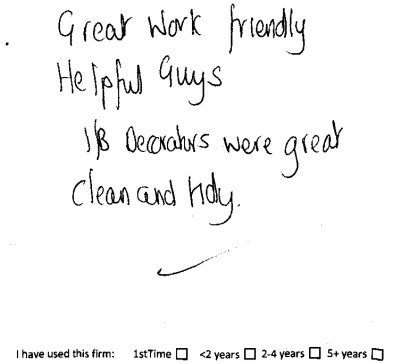 Great Work friendly
Helpful Guys
Decorators were great
Clean and tidy.
I have used this firm: 1stTime <2 years 2-4 years 5+ years